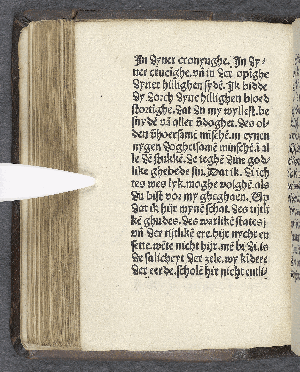 In dyner cronynghe. In dy-
ner crucighe. vñ in der opighe
dyner hillighen sydē. Ik bidde
dy dorch dyne hillighen bloed
stortighe. dat du my wyllest. be
in dē vā aller vndoghet. des ol-
den vnhorsamē mīschē. in eynen
nygen doghetsamē mīschē. ī al
le dē
like ghebede sin. Dat ik di ich
tes wes lyk. moghe volghē. als
du bist vor my ghegheen. Up
dat ik hijr mynē schat. des rijtli
kē ghudes. des warlikē states.
vñ der rijtlikē ere. hijr nycht en
sette. wēte nicht hijr. mē bi di. is
de salicheyt der zele. wy kīdere
der eerde. scholē hir nicht entli-